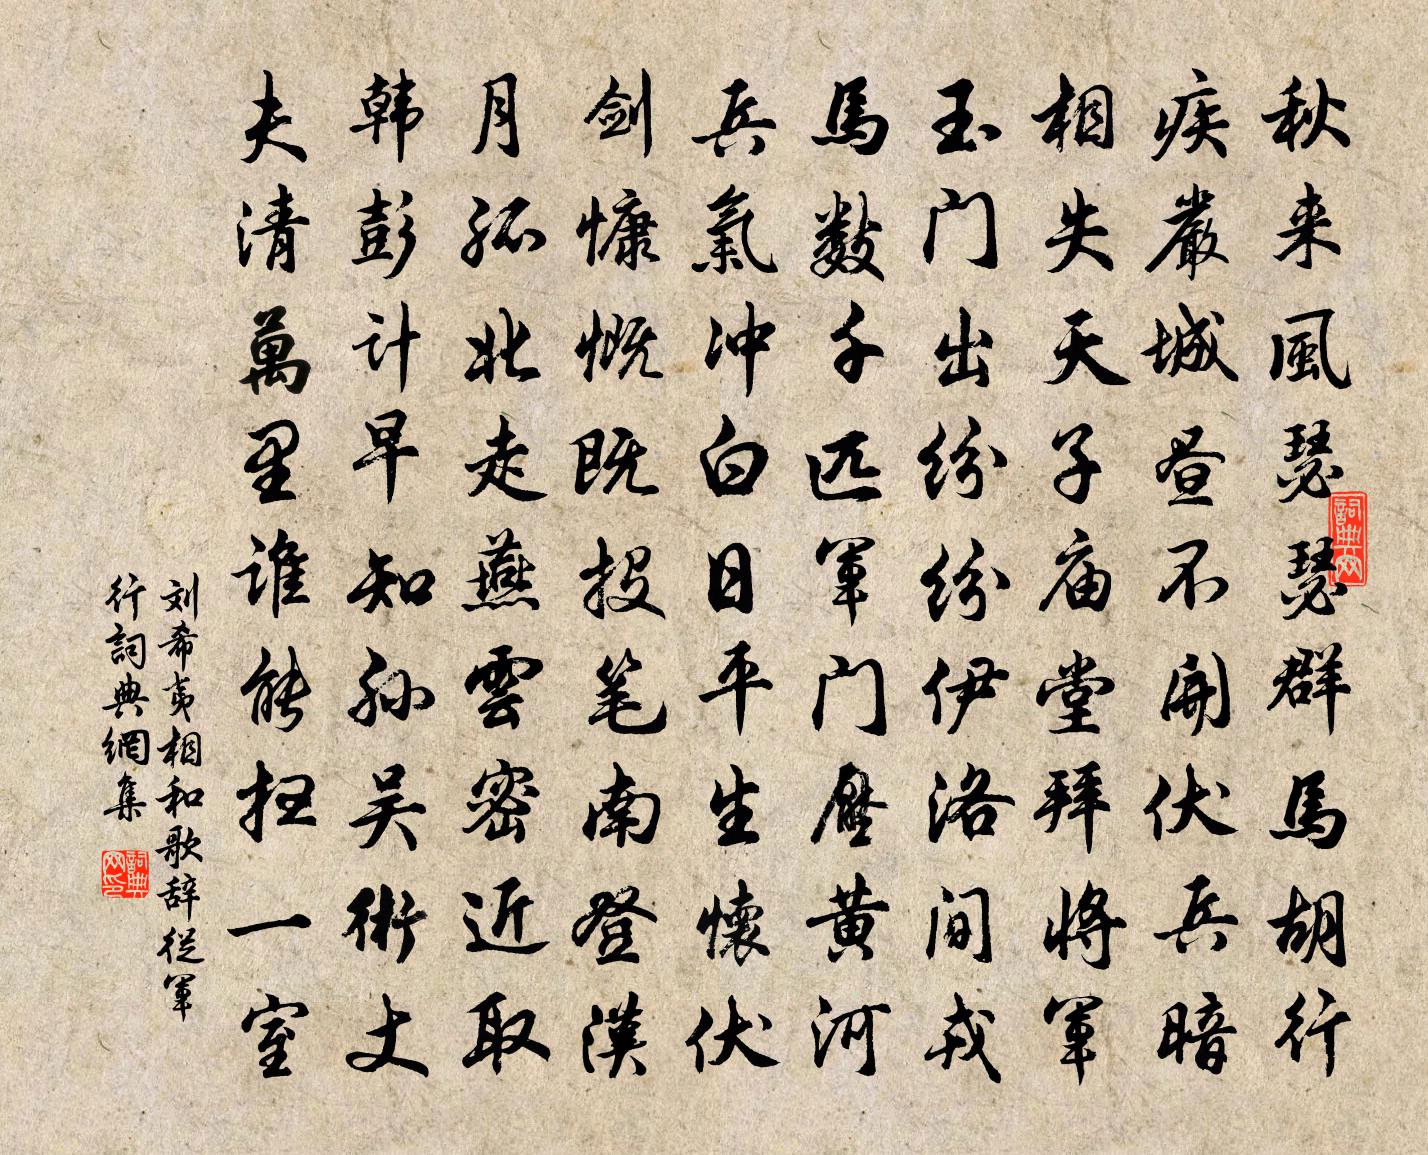 秋来風瑟瑟群馬胡行
疾嚴城昼不開伏兵暗
相失天子庙堂拜將軍
玉门出纷纷伊洛间戎
馬數千匹軍门壓黄河
兵氣冲白日平生懷伏
剑慷慨既投笔南登漢
月孤北走燕雲密近取
韩彭计早知孙吴術丈
夫清萬里谁能扫一室
刘希夷相和歌辞従軍
行詞典網集
詞典网
詞典网印